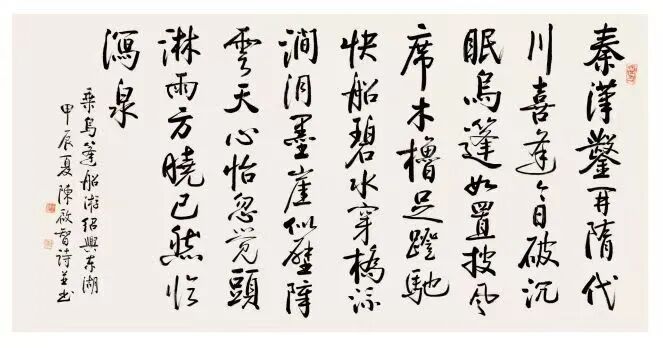 秦漢鑿开隋代
川喜逢今日破沉
眠烏篷如置披風
席木櫓足蹬馳
快船碧水穿橋添
澗墨崖似壁障
雲天心怡忽覺頭
淋雨方曉已然臨
瀉泉
乘烏篷船游紹興東湖
甲辰夏陳啟智詩並書